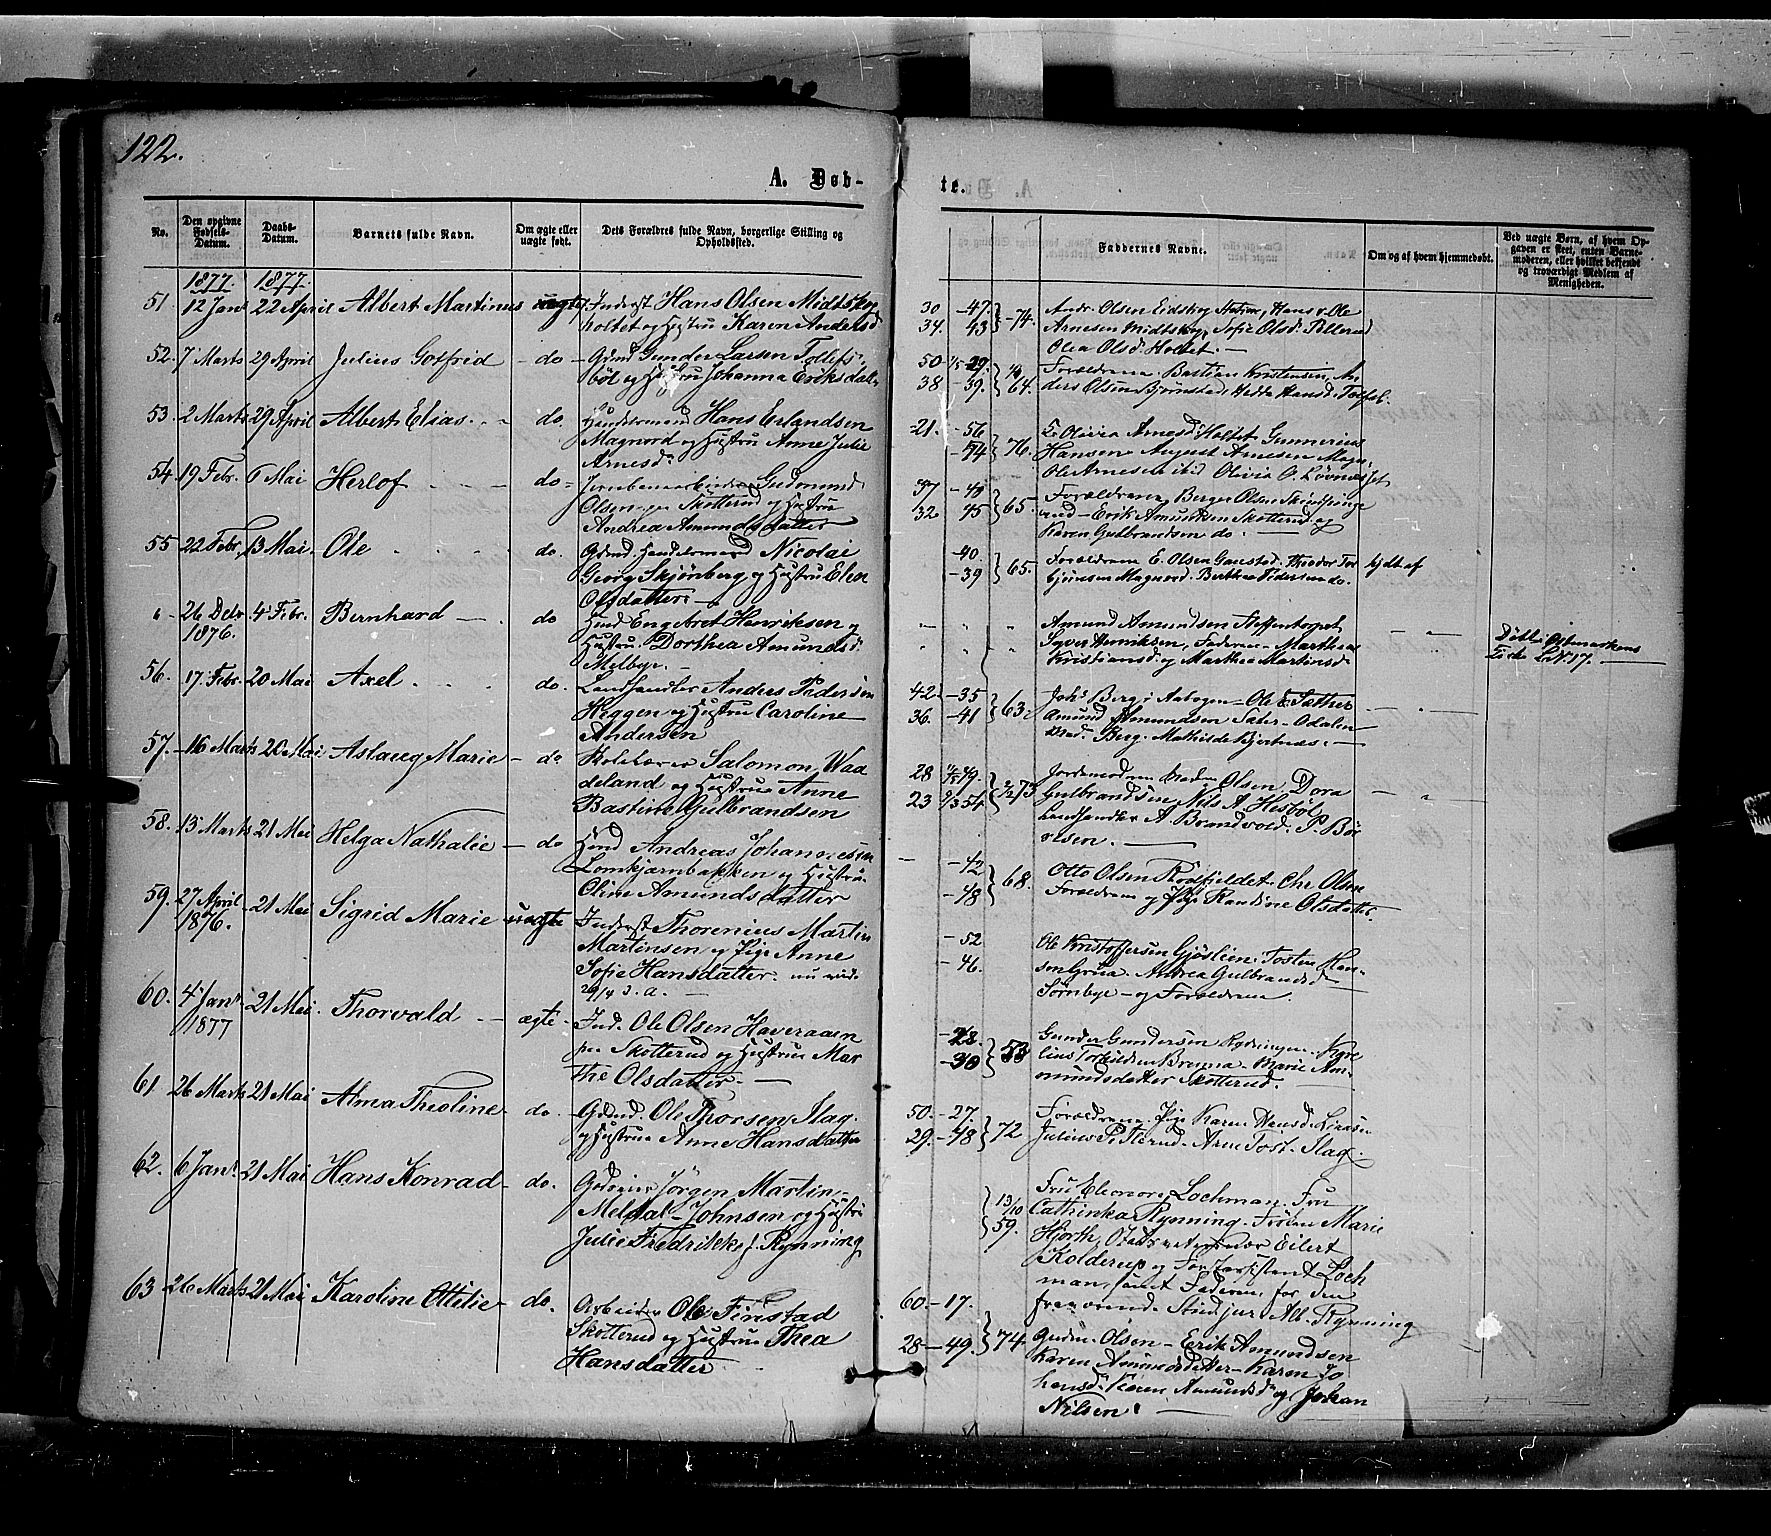 122.
A. Døb-
No.
Den opgivne Fødsels-Datum.
Daabs-Datum.
Barnets fulde Navn.
Om ægte eller uægte født.
Dets Forældres fulde Navn, borgerlige Stilling og Opholdssted.
1877. 1877.
51. 12 Janr 22 April Albert Martinus ægte Inderst Hans Olsen Midtskog
holtet og Hustru Karen Andersd.
52. 7 Marts 29 April Julius Gotfrid - do - Gbmd Gunder Larsen Tollefs-
böl og Hustru Johanna Eriksdatr
53. 2 Marts 29 April Albert Elias. - - do. Handelsmand Hans Erlandsen
Magnord og Hustru Anne Julie
Arnesdr
54. 19 Febr. 6 Mai Herlof - - - do - Jernbanearbeider Gudmund
Olsen Skotterud og Hustru
Andrea Amundsdatter
55 22 Febr. 13 Mai. Ole - - - do. Gbmd. Handelsmand Nicolai
Georg Skjönberg og Hustru Elen
Olsdatter. -
" 26 Debr 1876. 4 Febr. Bernhard - - do Hmd Engebret Henriksen og
Hustru Dorthea Amundsd.
Melbye. -
56. 17. Febr. 20 Mai Axel - - - do. Landhandler Anders Pedersen
Heggen og Hustru Caroline
Andersen
57. 16 Marts 20 Mai Aslaug Marie - do Skolelærer Salomon Waa
deland og Hustru Anne
Bastine Gulbrandsen
58. 13 Marts 21 Mai Helga Nathalie - do Hmd Andreas Johannesen
Lomkjærnbakken og Hustru
Oline Amundsdatter
59. 27 April 1876. 21 Mai Sigrid Marie uægte Inderst Thorenius Martin
Martinsen og Pige Anne
Sofie Hansdatter. nu
29/4 d. a. -
60. 4 Janr 1877 21 Mai. Thorvald - ægte - Ind. Ole Olsen Haveraaen
paa Skotterud og Hustru Mar
the Olsdatter. -
61 26 Marts 21 Mai Alma Theoline - do. Gbmd. Ole Thorsen Slag.
og Hustru Anne Hansdatter
62. 6 Janr. 21 Mai Hans Konrad - do. Gdeier Jörgen Martin
Meldal-Johnsen og Hustru
Julie Fredrikke f. Rynning
63 26 Marts 21 Mai Karoline Ottelie - do. Arbeider Ole Finstad
Skotterud og Hustru Thea
Hansdatter -
te.
Faddernes Navne.
Om og af hvem hjemmedøbt.
Ved uægte Børn, af hvem Opgaven er skeet, enten Barnemoderen, eller hvilket bekjendt og troværdigt Medlem af Menigheden.
30 - 47. } 74. Andr. Olsen Eidskog Hans o. Ole
34. 43 Arnesen Midtskog, Sofie Olsd. Pellerud
Olea Olsd. Holtet. -
50 29. Forældrene. Bastian Kristensen, An
38 - 39. } 64. ders Olsen Björnstad, Hedda Hansd. Tolfsb.
21. - 56 Olivia Arnesd. Holtet. Gunnerius
74 } 76. Hansen August Arnesen Magn.
Ole Arnesen ibid Olivia O. Lövnæsset
37 - 48 Forældrene Berger Olsen
32. 45 } 65. Erik Amundsen Skotterud og
Karen Gulbrandsen do. -
- 40. Forældrene E. Olsen Gaustad. Theodor Tor
- 39 } 65. björnsen Magnord. Berthea Pedersen do. hjdt af
" " " Amund Amundsen Steffentorpet
Syver Henriksen, Faderen. Marthea
Kristiansd. og Marthea Martinsd.
- " - Döbt i Østmarkens
Tich LN. 17. -
42. - 35 Johs Berg i Aabogen - Ole E. Sæther
36. - 41 } 63. Amund Amundsen Sæter - Odalen
Berg. Mathilde Bjertnæs. -
- " -
28 49. Jordemodren Madam Olsen, Dora
23 54 } 73 Gulbrandsen Nils A. Hesböl
Landhandler A. Brandvold. P. Bö
olsen. -
- " -
- 42 Otto Olsen Chr. Olsen
- 48 } 68. Forældrene og Pige Randine Olsdatter.
- 52 Ole Kristoffersen Gjöslien. Tosten Han
- 46. sen Grua. Andrea Gulbrandsd.
Sörnbye - og Forældrene.
- 28. Gunder Gundersen Rydningen. Kare
- 30 } 53 lius Torkildsen Breyna - Marie Am-
undsdatter Skotterud.
50. - 27. Forældrene, Pige Karen Hansd. Linæen
29. - 48 } 72 Julius Pisterud. Arne Tost. Slag.
13/10 59. Fru Eleonore Lochman. Fru
Cathinka Rynning. Fröken Marie
Hjorth, Eilert
Kolderup og Forstassistent Loch
man, samt Faderen, for den
fraværende Stud. jur. Alb. Rynning
60. - 17.
28 - 49. } 74 Gudm. Olsen - Erik Amundsen
Karen Amundsdatter - Karen Jo
hansd. Karen Amundsdr og Johan
Nilsen. -